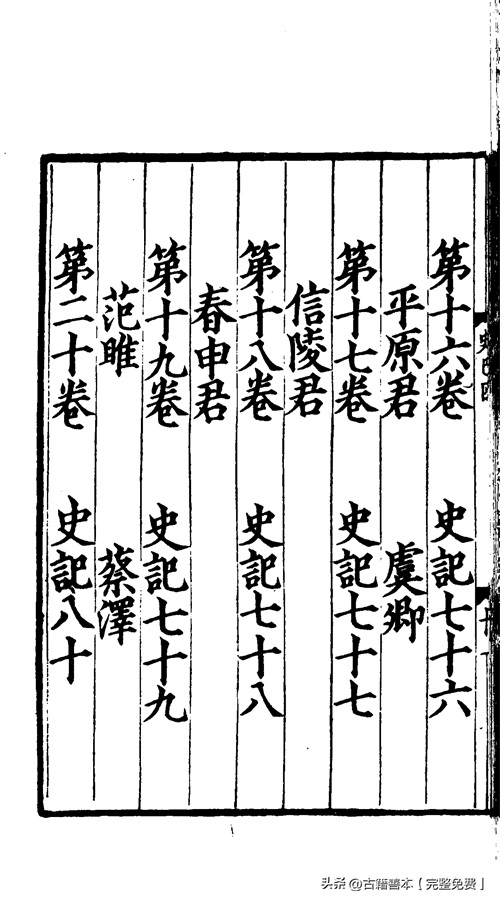 第十六卷 史記七十六
平原君 虞卿
第十七卷 史記七十七
信陵君
第十八卷 史記七十八
春申君
第十九卷 史記七十九
范雎 蔡澤
第二十卷 史記八十
头条 @古籍善本【完整免费】